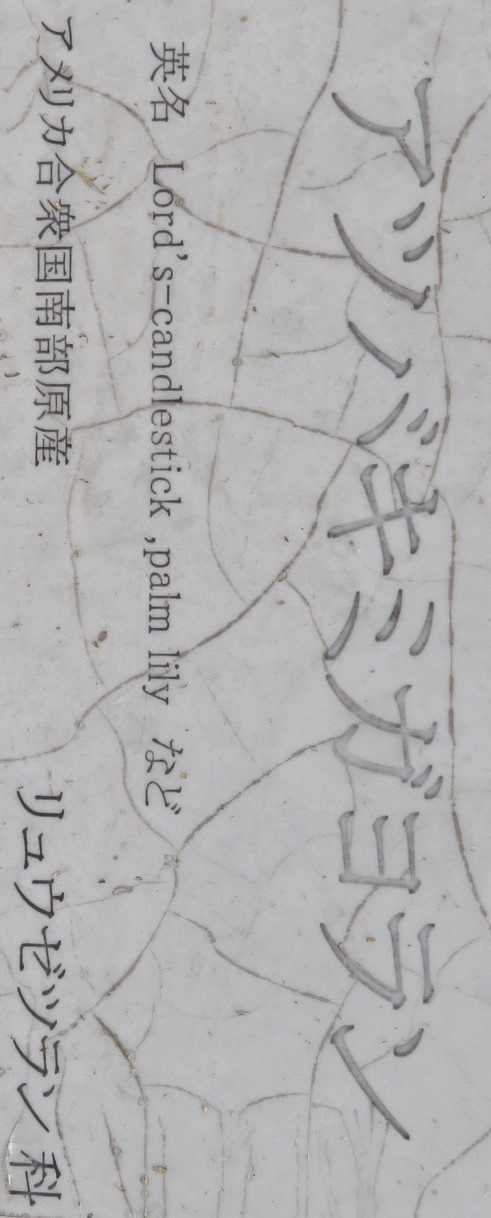 アツバキミガヨラン
英名 Lord's-candlestick ,palm lily など
アメリカ合衆国南部原産
リュウゼツラン科